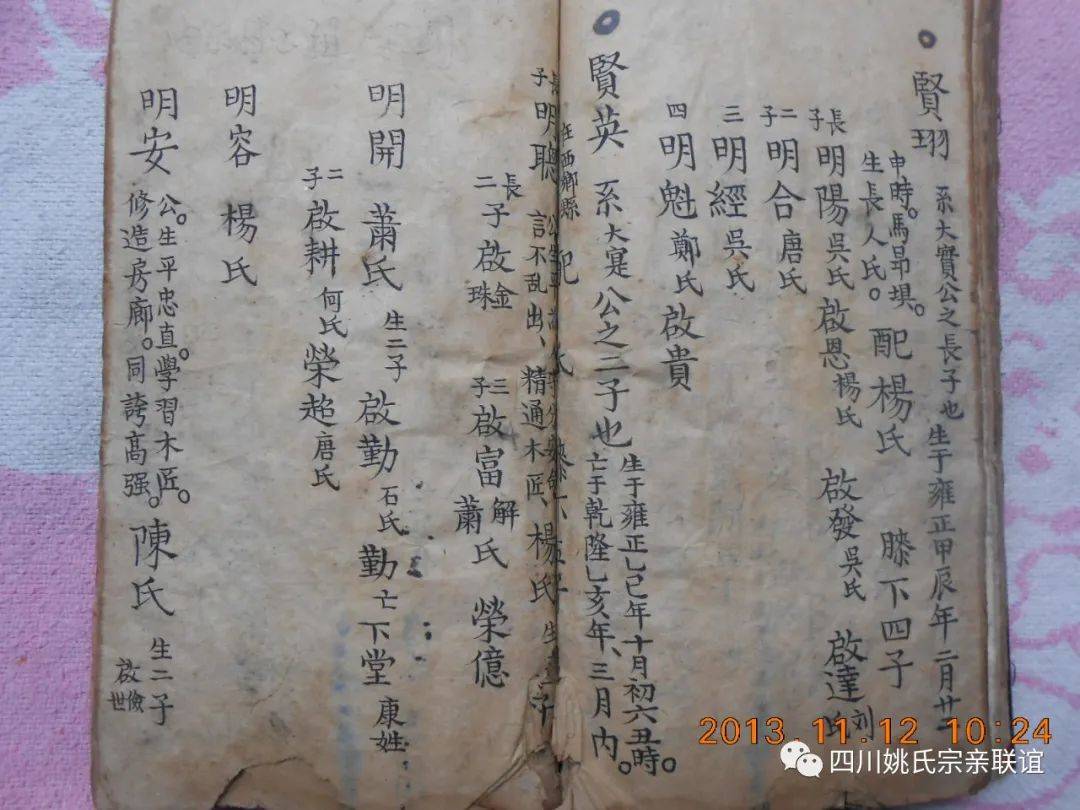 賢珝 系大實公之長子也 生于雍正甲辰年二月廿
申時。馬昻垻。
生長人氏。 配楊氏 膝下四子
長子明陽吳氏 啟恩楊氏 啟發吳氏 啟達刘氏
二子明合唐氏
三明經吳氏
四明魁鄭氏 啟貴
賢英 系大寔公之二子也 生于雍正乙巳年十月初六丑時。
亡于乾隆乙亥年、三月內。
在西鄉縣 配
長子明聰 公生平
言不乱出、精通木匠、楊氏 生
長二子啟金
珠
三子啟富解蕭氏 榮億
明開 蕭氏 生二子 啟勤石氏 勤亡下堂康姓
二子啟耕何氏榮超唐氏
明容 楊氏
明安 公。生平忠直。學習木匠。
修造房廊。同誇高强。 陳氏 生二子
啟儉
世
2013.11.12 10:24
四川姚氏宗亲联谊